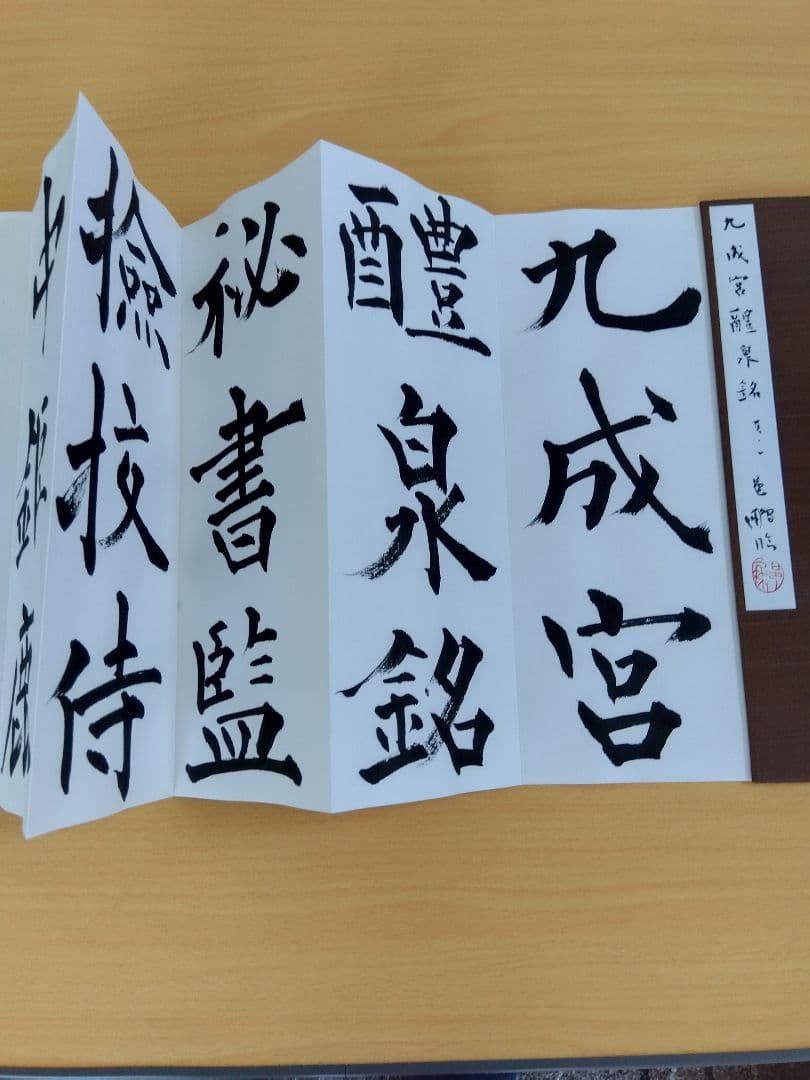 九成宮醴泉銘 臨
九成宮
醴泉銘
祕書監
撿挍侍
中鉅鹿